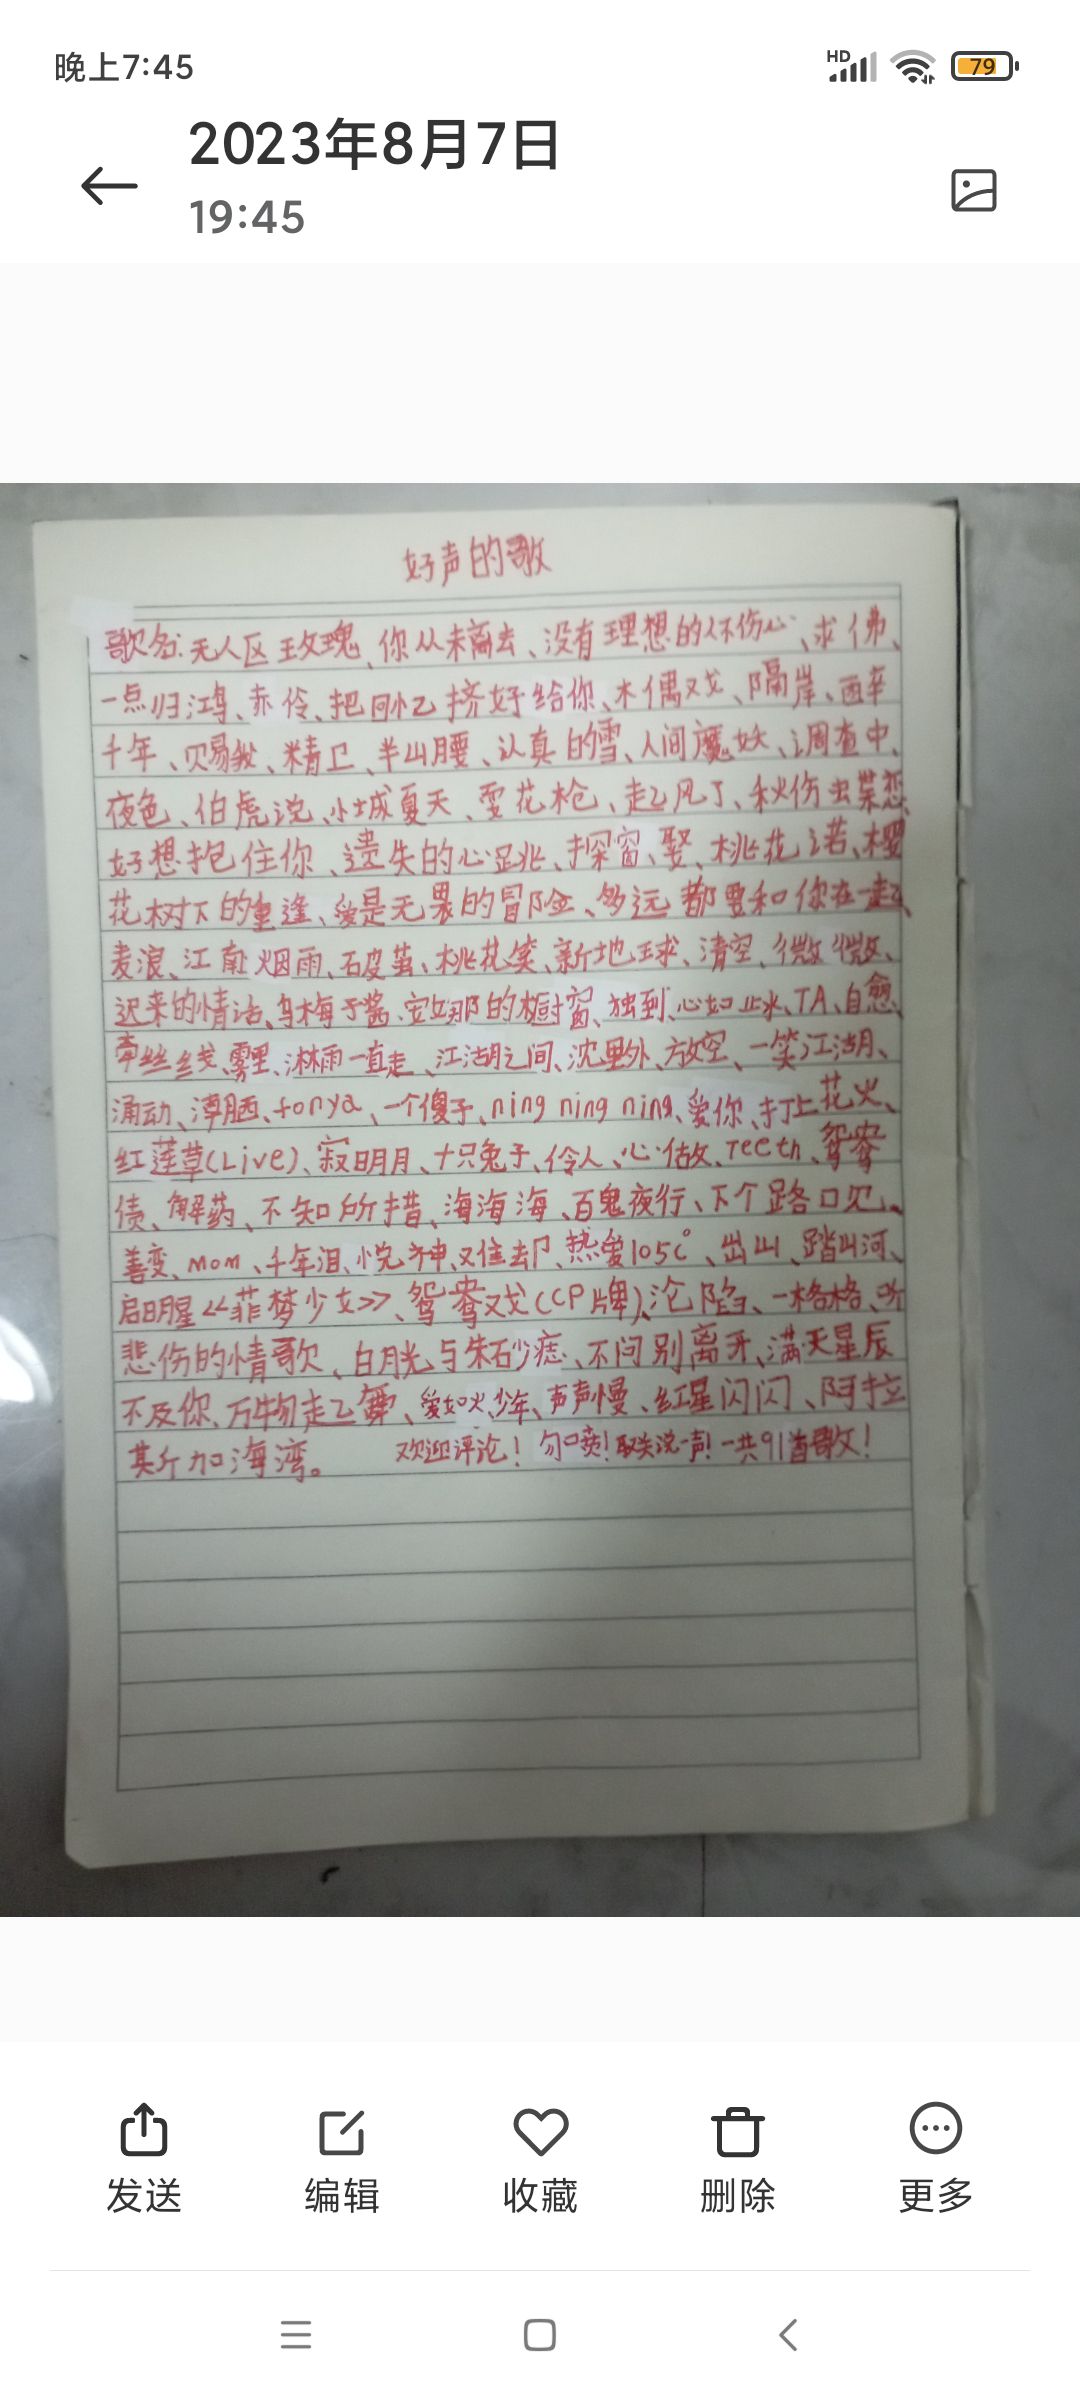 晚上7:45
HD
79
2023年8月7日
19:45
好声的歌
歌名:无人区玫瑰、你从未离去、没有理想的人不伤心、求佛、
一点归鸿、赤伶、把回忆挤好给你、木偶戏、隔岸、西辛
千年、赐我、精卫、半山腰、认真的雪、人间魔妖、调查中、
夜色、伯虎说、小城夏天、雯花枪、起风了、秋伤虫禁恋、
好想抱住你、遗失的心跳、探窗、娶、桃花诺、樱
花树下的重逢、爱是无畏的冒险、多远都要和你在一起、
麦浪、江南烟雨、破茧、桃花笑、新地球、清空、微微、
迟来的情话、乌梅子酱、安妮那的橱窗、独到、心如止水、TA、自愈、
牵丝丝线、雾里、淋雨一直走、江湖之间、沈里外、放空、一笑江湖、
涌动、潭陋、fonya、一个傻子、ning ning ning、爱你、打上花火、
红莲草(Live)、寂明月、十只兔子、伶人、心做、Teeth、鸳鸯
债、解药、不知所措、海海海、百鬼夜行、下个路口见、
善变、mom、千年泪、悦神、难却、热爱105c°、出山、踏山河、
启明星<<菲梦少女>>、鸳鸯戏(CP牌)、沦陷、一格格、听
悲伤的情歌、白月光与朱砂痣、不问别离开、满天星辰
不及你、万物起舞、爱如火、少年、声声慢、红星闪闪、阿拉
其斤加海湾。 欢迎评论!勿喷!取关说一声!一共91首歌!
发送
编辑
收藏
删除
更多